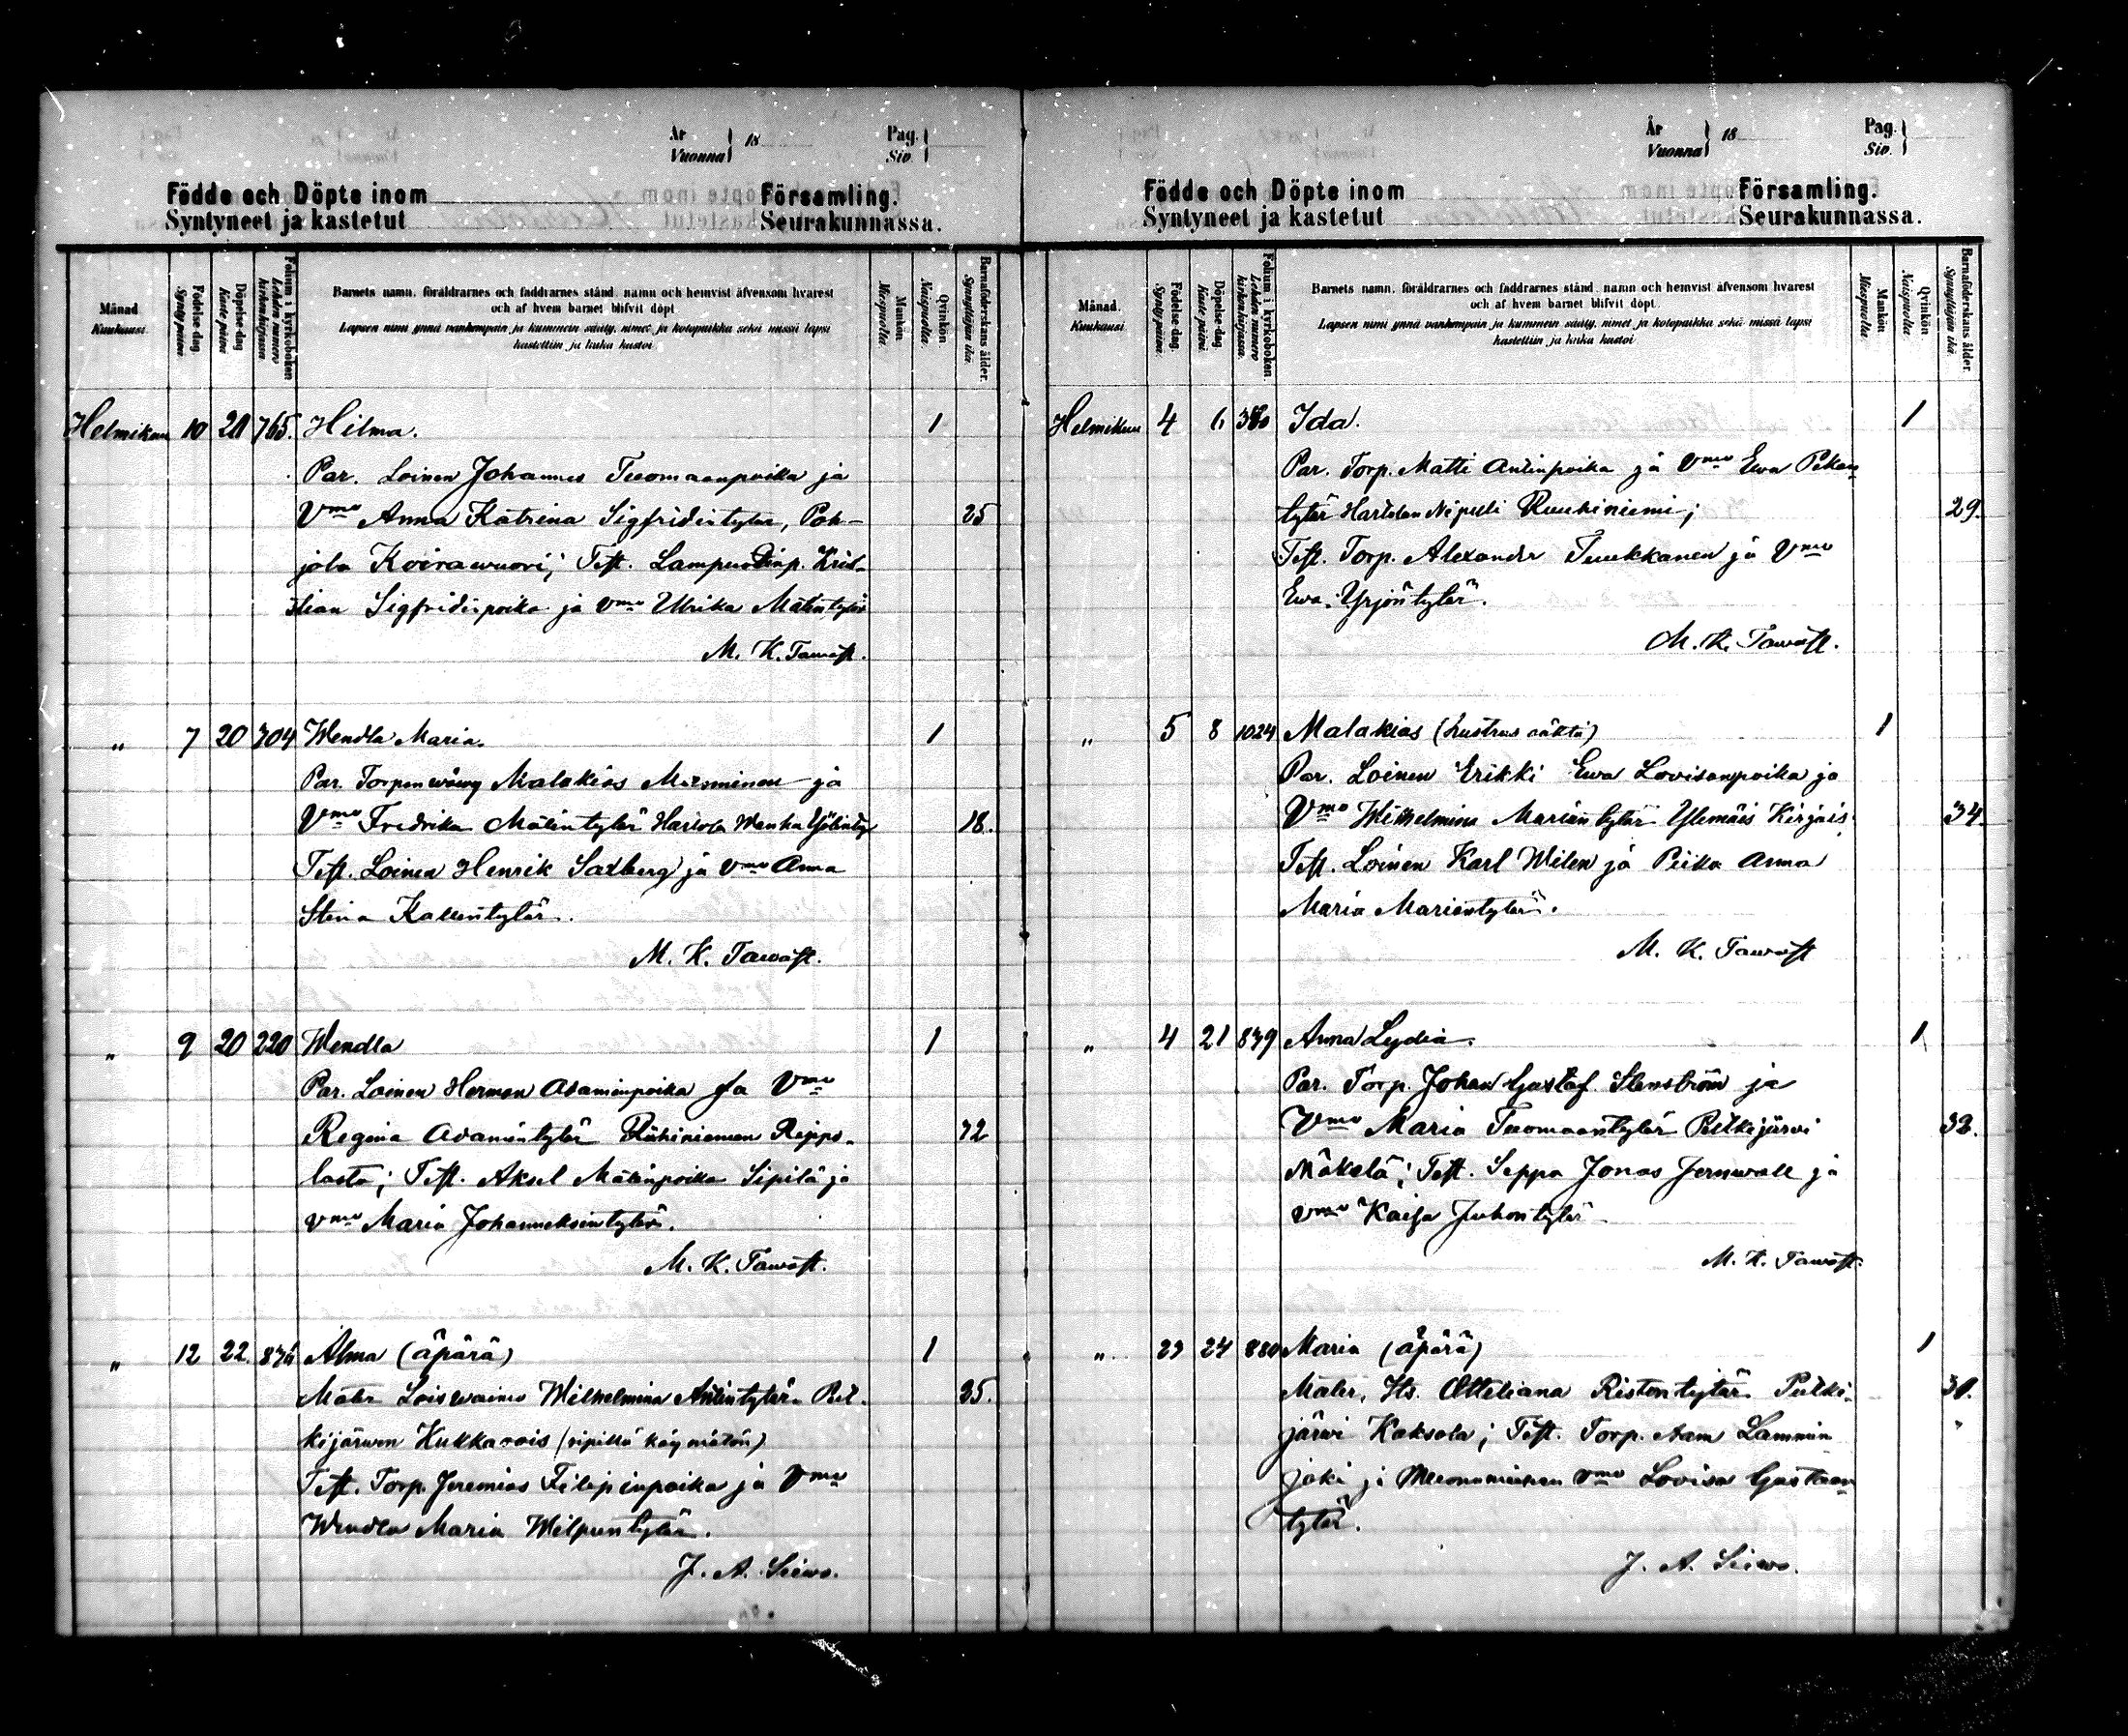 År
Vuonna } 18
Pag.
Siv. }
Födde och Döpte inom Församling.
Syntyneet ja kastetut Seurakunnassa.
Månad. Kuukausi.
Födelse-dag. Syntypäivä.
Döpelse-dag. Kaste päivä.
Folium i kyrkoboken Lehden numero kirkonkirjassa.
Barnets namn, föräldrarnes och faddrarnes stånd, namn och hemvist äfvensom hvarest
och af hvem barnet blifvit döpt.
Lapsen nimi ynnä vanhempain ja kummein sääty, nimet ja kotopaikka sekä missä lapsi
kastettiin ja kuka kastoi.
Mankön Miespuolia.
Qvinkön Naispuolia.
Barnaföderskans ålder. Synnyttäjän ikä.
Helmikuu 10 20 765. Hilma. 1
Par. Loinen Johannes Tuomaanpoika ja
Vmo Anna Katrina Sigfridintytär, Poh- 25
jola Koirawuori; Test. Lampuodinp. Kris-
tian Sigfridinpoika ja vmo Ulrika Matintytär
M. K. Tawast.
" 7 20 304 Wendla Maria. 1
Par. Torpan wäwy Malakias Mieminen ja
Vmo Fredrika Matintytär Hartola 18.
Test. Loinen Henrik Saxberg ja vmo Anna
Stina Kallentytär.
M. K. Tawast.
" 9 20 220 Wendla 1
Par. Loinen Herman Adaminpoika ja Vmo
Regina Adamintytär Ruhiniemen Reppo- 42
lasta; Test. Aksel Matinpoika Sipilä ja
vmo Maria Johanneksentytär.
M. K. Tawast.
" 12 22. 876 Alma (äpärä) 1
Mater Loiswaimo Wilhelmina Antintytär Pit- 35.
kijärwen Kukkarois (ripillä käymätön)
Test. Torp. Jeremias Filipinpoika ja Vmo
Wendla Maria Wilpuntytär.
J. A. Siewo.
År
Vuonna } 18
Pag.
Siv. }
Födde och Döpte inom Församling.
Syntyneet ja kastetut Seurakunnassa.
Månad. Kuukausi.
Födelse-dag. Syntypäivä.
Döpelse-dag. Kaste päivä.
Folium i kyrkoboken. Lehden numero kirkonkirjassa.
Barnets namn, föräldrarnes och faddrarnes stånd, namn och hemvist äfvensom hvarest
och af hvem barnet blifvit döpt.
Lapsen nimi ynnä vanhempain ja kummein sääty, nimet ja kotopaikka sekä missä lapsi
kastettiin ja kuka kastoi.
Mankön Miespuolia.
Qvinkön Naispuolia.
Barnaföderskans ålder. Synnyttäjän ikä.
Helmikuu 4 6 Ida. 1
Par. Torp. Matti Antinpoika ja Vmo Ewa Pekan-
tytär Hartolan Nipuli Ruuhiniemi; 29.
Test. Torp. Alexander Tuukkanen ja Vmo
Ewa Yrjöntytär.
M. K. Tawast.
" 5 8 1024 Malakias (kustrus äältä) 1
Par. Loinen Erikki Ewa Lovisanpoika ja
Vmo Wilhelmina Mariantytär Ylemäis Kirjais 34.
Test. Loinen Karl Wilen ja Piika Anna
Maria Mariantytär.
M. K. Tawast
" 4 21 839 Anna Lydia. 1
Par. Torp. Johan Gustaf Stenström ja
Vmo Maria Tuomaantytär Pitkäjärvi 32.
Mäkelä; Test. Seppä Jonas Jernwall ja
vmo Kaisa Juhontytär
M. K. Tawast.
" 23 24 880 Maria (äpärä) 1
Mater. Its. Ottiliana Ristontytär Pitkä- 30.
järwi Kaksola; Test. Torp. Aam Lammin-
joki ja vmo Lovisa Gustaan-
tytär.
J. A. Siewo.